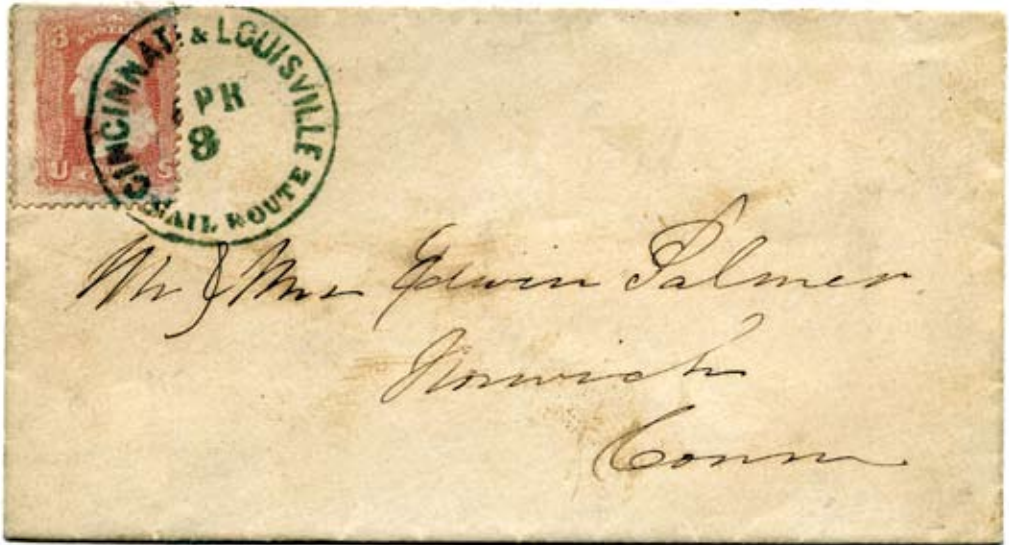 3
U S
CINCINNATI & LOUISVILLE
APR
8
MAIL ROUTE
Mr & Mrs Edwin Palmer
Norwich
Conn